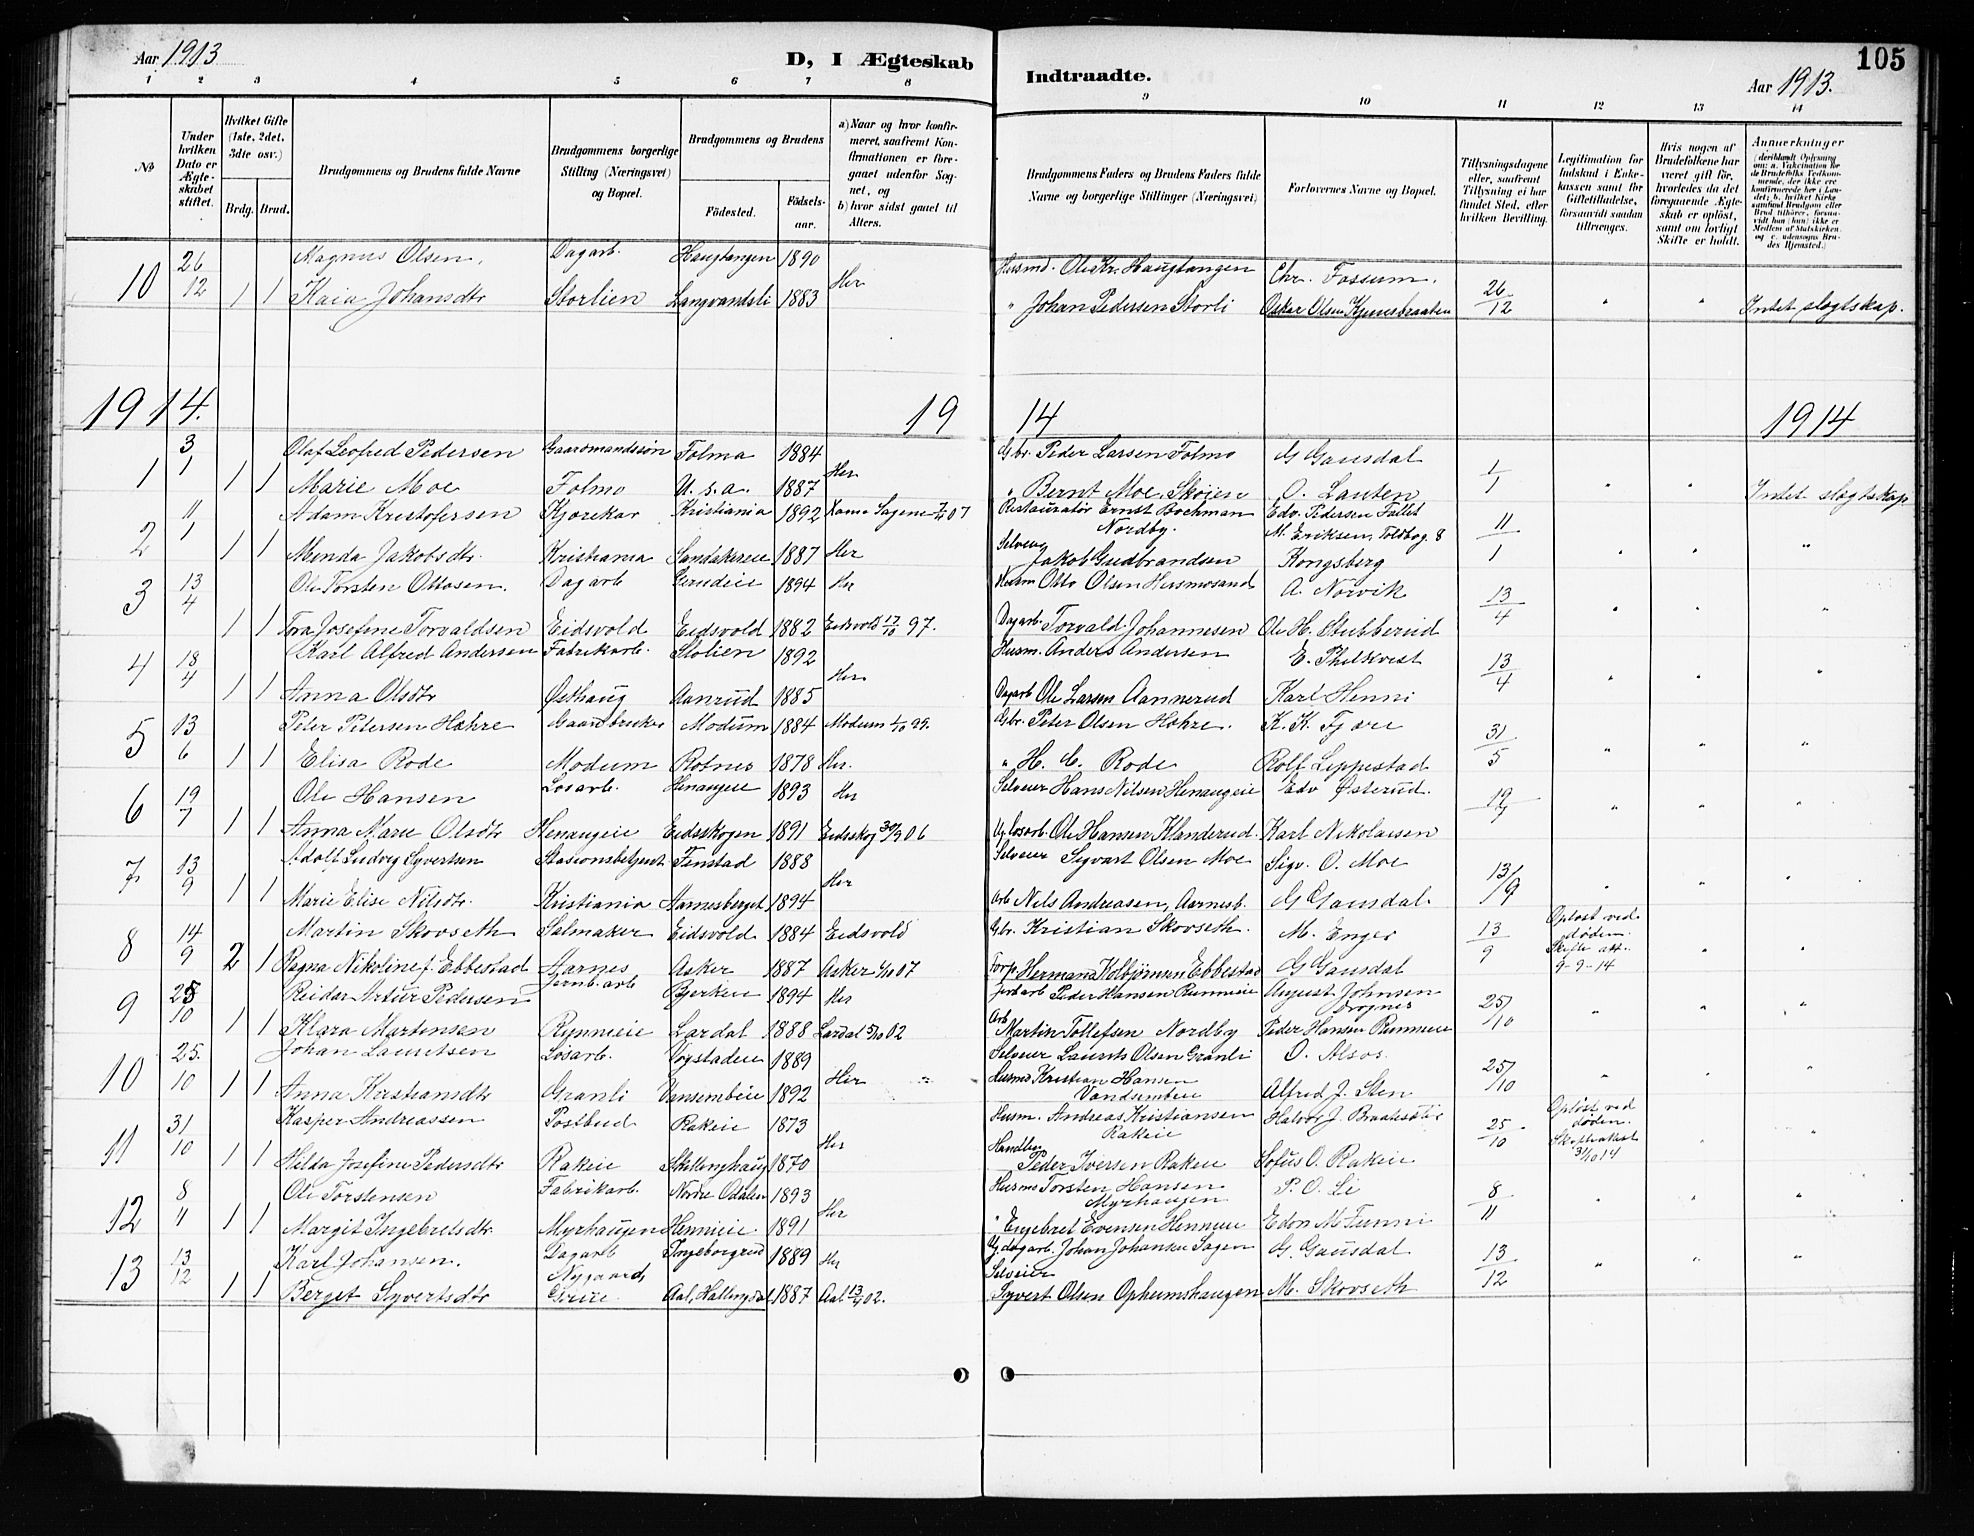 Aar 1913
D, I Ægteskab
Indtraadte.
Aar 1913.
105
1 2 3 4 5 6 7 8 9 10 11 12 13 14
No
Under hvilken Dato er Ægteskabet stiftet.
Hvilket Gifte (1ste, 2det, 3dte osv.)
Brdg. Brud.
Brudgommens og Brudens fulde Navne
Brudgommens borgerlige Stilling (Næringsvei) og Bopæl.
Brudgommens og Brudens
Fødested.
Fødselsaar.
a) Naar og hvor konfirmeret, saafremt Konfirmationen er foregaaet udenfor Sognet, og
b) hvor sidst gaaet til Alters.
Brudgommens Faders og Brudens Faders fulde Navne og borgerlige Stillinger (Næringsvei)
Forlovernes Navne og Bopæl.
Tillysningsdagene eller, saafremt Tillysning ei har fundet Sted, efter hvilken Bevilling.
Legitimation for Indskud i Enkekassen samt for Giftetilladelse, forsaavidt saadan tiltrænges.
Hvis nogen af Brudefolkene har været gift før, hvorledes da det foregaaende Ægteskab er opløst, samt om lovligt Skifte er holdt.
Anmerkninger
(deriblandt Oplysning om: a. Vakcination for de Brudefolks Vedkommende, der ikke ere konfirmerede her i Landet; b. hvilket Kirkesamfund Brudgom eller Brud tilhører, forsaavidt han (hun) ikke er Medlem af Statskirken, og c. udensogns Brudes Hjemsted.)
10 26/12 Magnus Olsen, Dagarb. Haugtangen 1890 Her Husmd. Ole Kr. Haugtangen Chr. Fossum. 26/12
1 1 Kaia Johansdtr Storlien Langvandsli 1883 " Johan Pedersen Storli Oskar Olsen Kjernsbraaten " " Intet slegtskap.
1914. 19 14 1914
1 3/1 Olaf Leofred Pedersen Gaardmandssøn Folma 1884 Her Gbr. Peder Larsen Folmo G Gausdal 1/1
1 1 Marie Moe Folmo U. s. a. 1887 " Bernt Moe, Skøien O. Lauten " " Intet slegtskap
2 11/1 Adam Kristofersen Kjørekar Kristiania 1892 Restauratør Ernst Bochman Nordby. Edv. Pedersen M. Eriksen, Toldbog. 8 11/1
1 1 Menda Jakobsdtr. Kristiania 1887 Her Selveier Jakob Gudbrandsen Kongsberg " " "
3 13/4 Ole Torsten Ottosen. Dagarb 1894 Her Husm Otto Olsen Husmosand A. Norvik 13/4
1 1 Tora Josefine Torvaldsen Eidsvold Eidsvold 1882 Eidsvold 17/10 97. Dagarb. Torvald Johannesen Ole H. Stubberud " " "
4 18/4 Karl Alfred Andersen Fabrikarb. Stolien 1892 Her Husm. Anders Andersen 13/4
1 1 Anna Olsdtr Østhaug Aanrud 1885 Dagarb Ole Larsen Aannerud Karl Henni " " "
5 13/6 Peter Petersen Hakre Gaardbruker Modum 1884 Gbr. Peter Olsen Hakre. K. K. Fjære 31/5
1 1 Elisa Rode Modum Rotnes 1878 Her. " H. C. Rode Rolf Leppestad " " "
6 19/7 Ole Hansen Løsarb. Henaugeie 1893 Her Selveier Hans Nilsen Henaugeie Edv Østerud. 19/7
1 1 Anna Marie Olsdtr Henaugeie Eidsskogen 1891 Eidsskog 30/9 06 Ole Hansen Klanderud. Karl Nikolaisen " " "
7 13/9 Adolf Ludvig Syvertsen Stasionsbetjent Finstad 1888 Her Selveier Sigvart Olsen Moe Sigv. O. Moe 13/9
1 1 Marie Elise Nilsdtr. Kristiania Aarnesberget 1894 Arb Nils Andreasen, Aarnesb. G Gausdal. " " "
8 14/9 Martin Skovseth Salmaker Eidsvold 1884 Eidsvold Gbr. Kristian Skovseth. M. Enger 13/9 Opløst ved døden. Skifte att. 9-9-14
2 1 Ragna Nikoline f. Ebbestad Aarnes Asker 1887 Asker 07 Forp. Herman Kolbjørnsen Ebbestad G Gausdal " "
9 25/10 Reidar Artur Pedersen Jernb. arb Bjerkeie 1894 Her Peder Hansen Runmeie August Johnsen Aarnes 25/10
1 1 Klara Martensen Runmeie Lardal 1888 Lardal 5/10 02 Arb Martin Tollefsen Nordby Peder Hansen Runmeie " " "
10 25./10 Johan Lauritsen Løsarb. Vogstadeie 1889 Her Selveier Laurits Olsen Granli O. Alsos. 25/10
1 1 Anna Kristiansdtr Granli Vansembeie 1892 Husmd Kristian Hansen Vandsembeie Alfred J. Sten " " "
11 31/10 Kasper Andreassen Postbud Rakeie 1873 Her Husm. Andreas Kristiansen Rakeie Halvor J. Braatesletta 25/10 Opløst ved døden. Skifteattest 31/10 14
1 1 Hilda Josefine Pedersdtr Rakeie Skillinghaug 1870 Handler Peder Iversen Rakeie Sofus O. Rakeie " "
12 8/11 Ole Torstensen Fabrikarb. Nordre Odalen 1893 Her Husmd Torsten Hansen Myrhaugen P. O. Li 8/11
1 1 Margit Ingebretsdtr. Myrhaugen Henmeie. 1891 " Engebret Evensen Henmeie Edon M Funni " " "
13 13/12 Karl Johansen. Dagarb Nygaard Ingeborgrud 1889 Her Johan Johansen Sagen G. Gausdal 13/12
1 1 Berget Syvertsdtr Grueie. Aal, Hallingdal 1887 Aal 02. Selveier Syvert Olsen Opheimshaugen M. Skovseth " " "